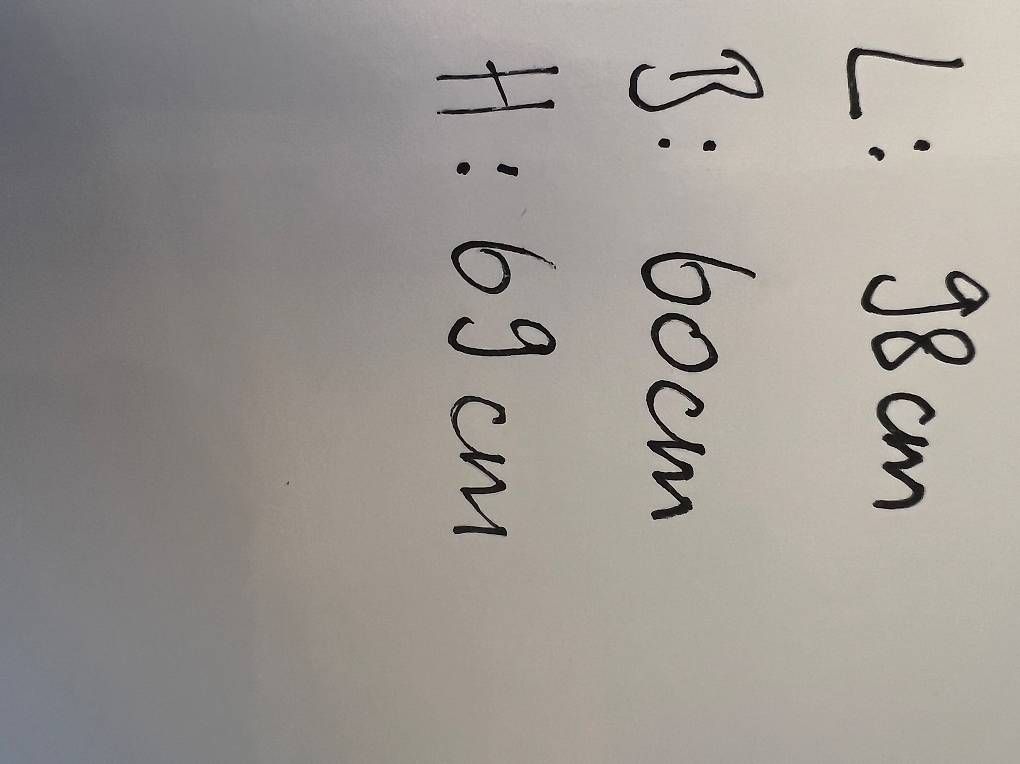 L: 98 cm
B: 60cm
H: 69 cm